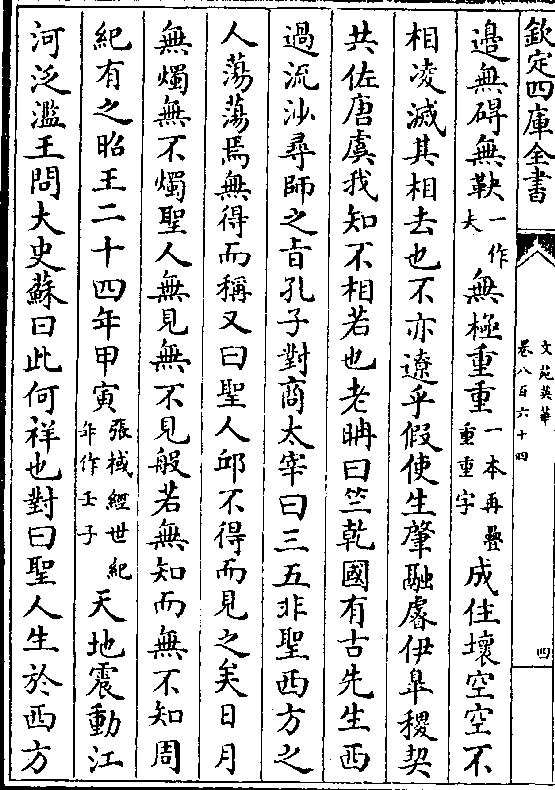 欽定四庫全書
文苑英華
卷八百六十四
四
邊無碍無鞅一作大無極重重一本再疊重重字成住壞空空不
相凌滅其相去也不亦遼乎假使生肇融睿伊臯稷契
共佐唐虞我知不相若也老聃曰竺乾國有古先生西
過流沙尋師之㫖孔子對商太宰曰三五非聖西方之
人蕩蕩焉無得而稱又曰聖人邱不得而見之矣日月
無燭無不燭聖人無見無不見般若無知而無不知周
紀有之昭王二十四年甲寅張棫經世紀年作壬子天地震動江
河泛濫王問大史蘇曰此何祥也對曰聖人生於西方